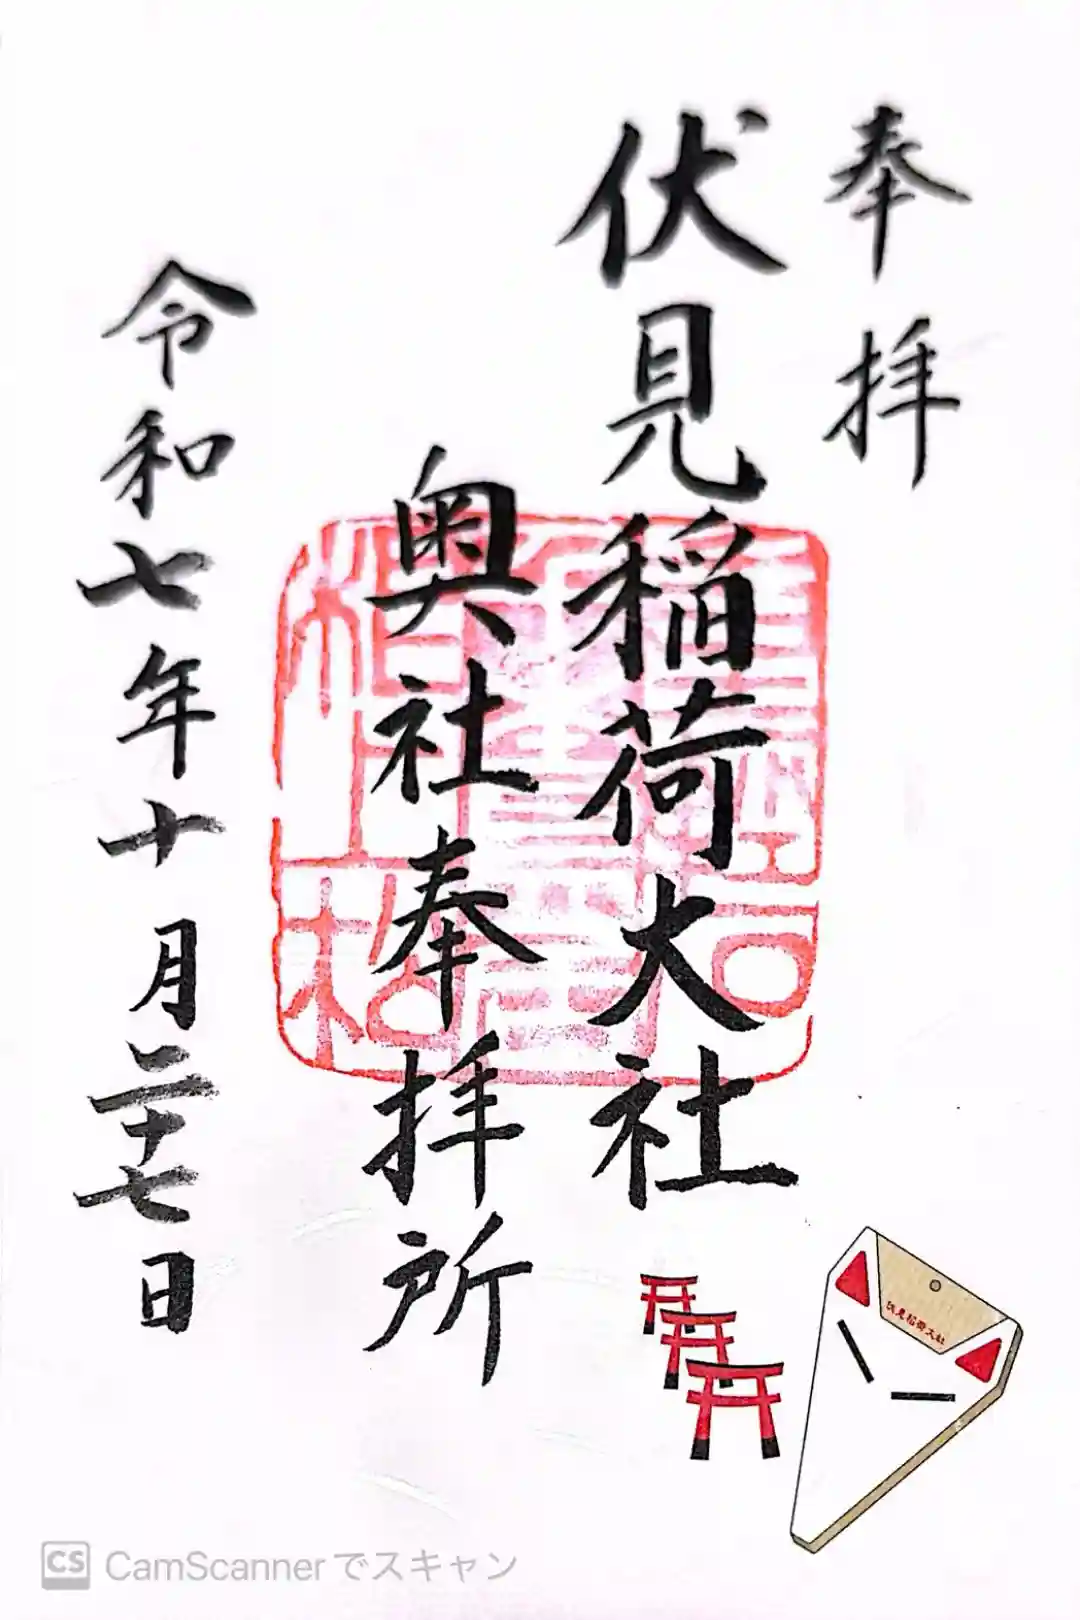 奉拝
伏見稲荷大社
奥社奉拝所
令和七年十月二十七日
伏見稲荷大社
CS CamScannerでスキャン